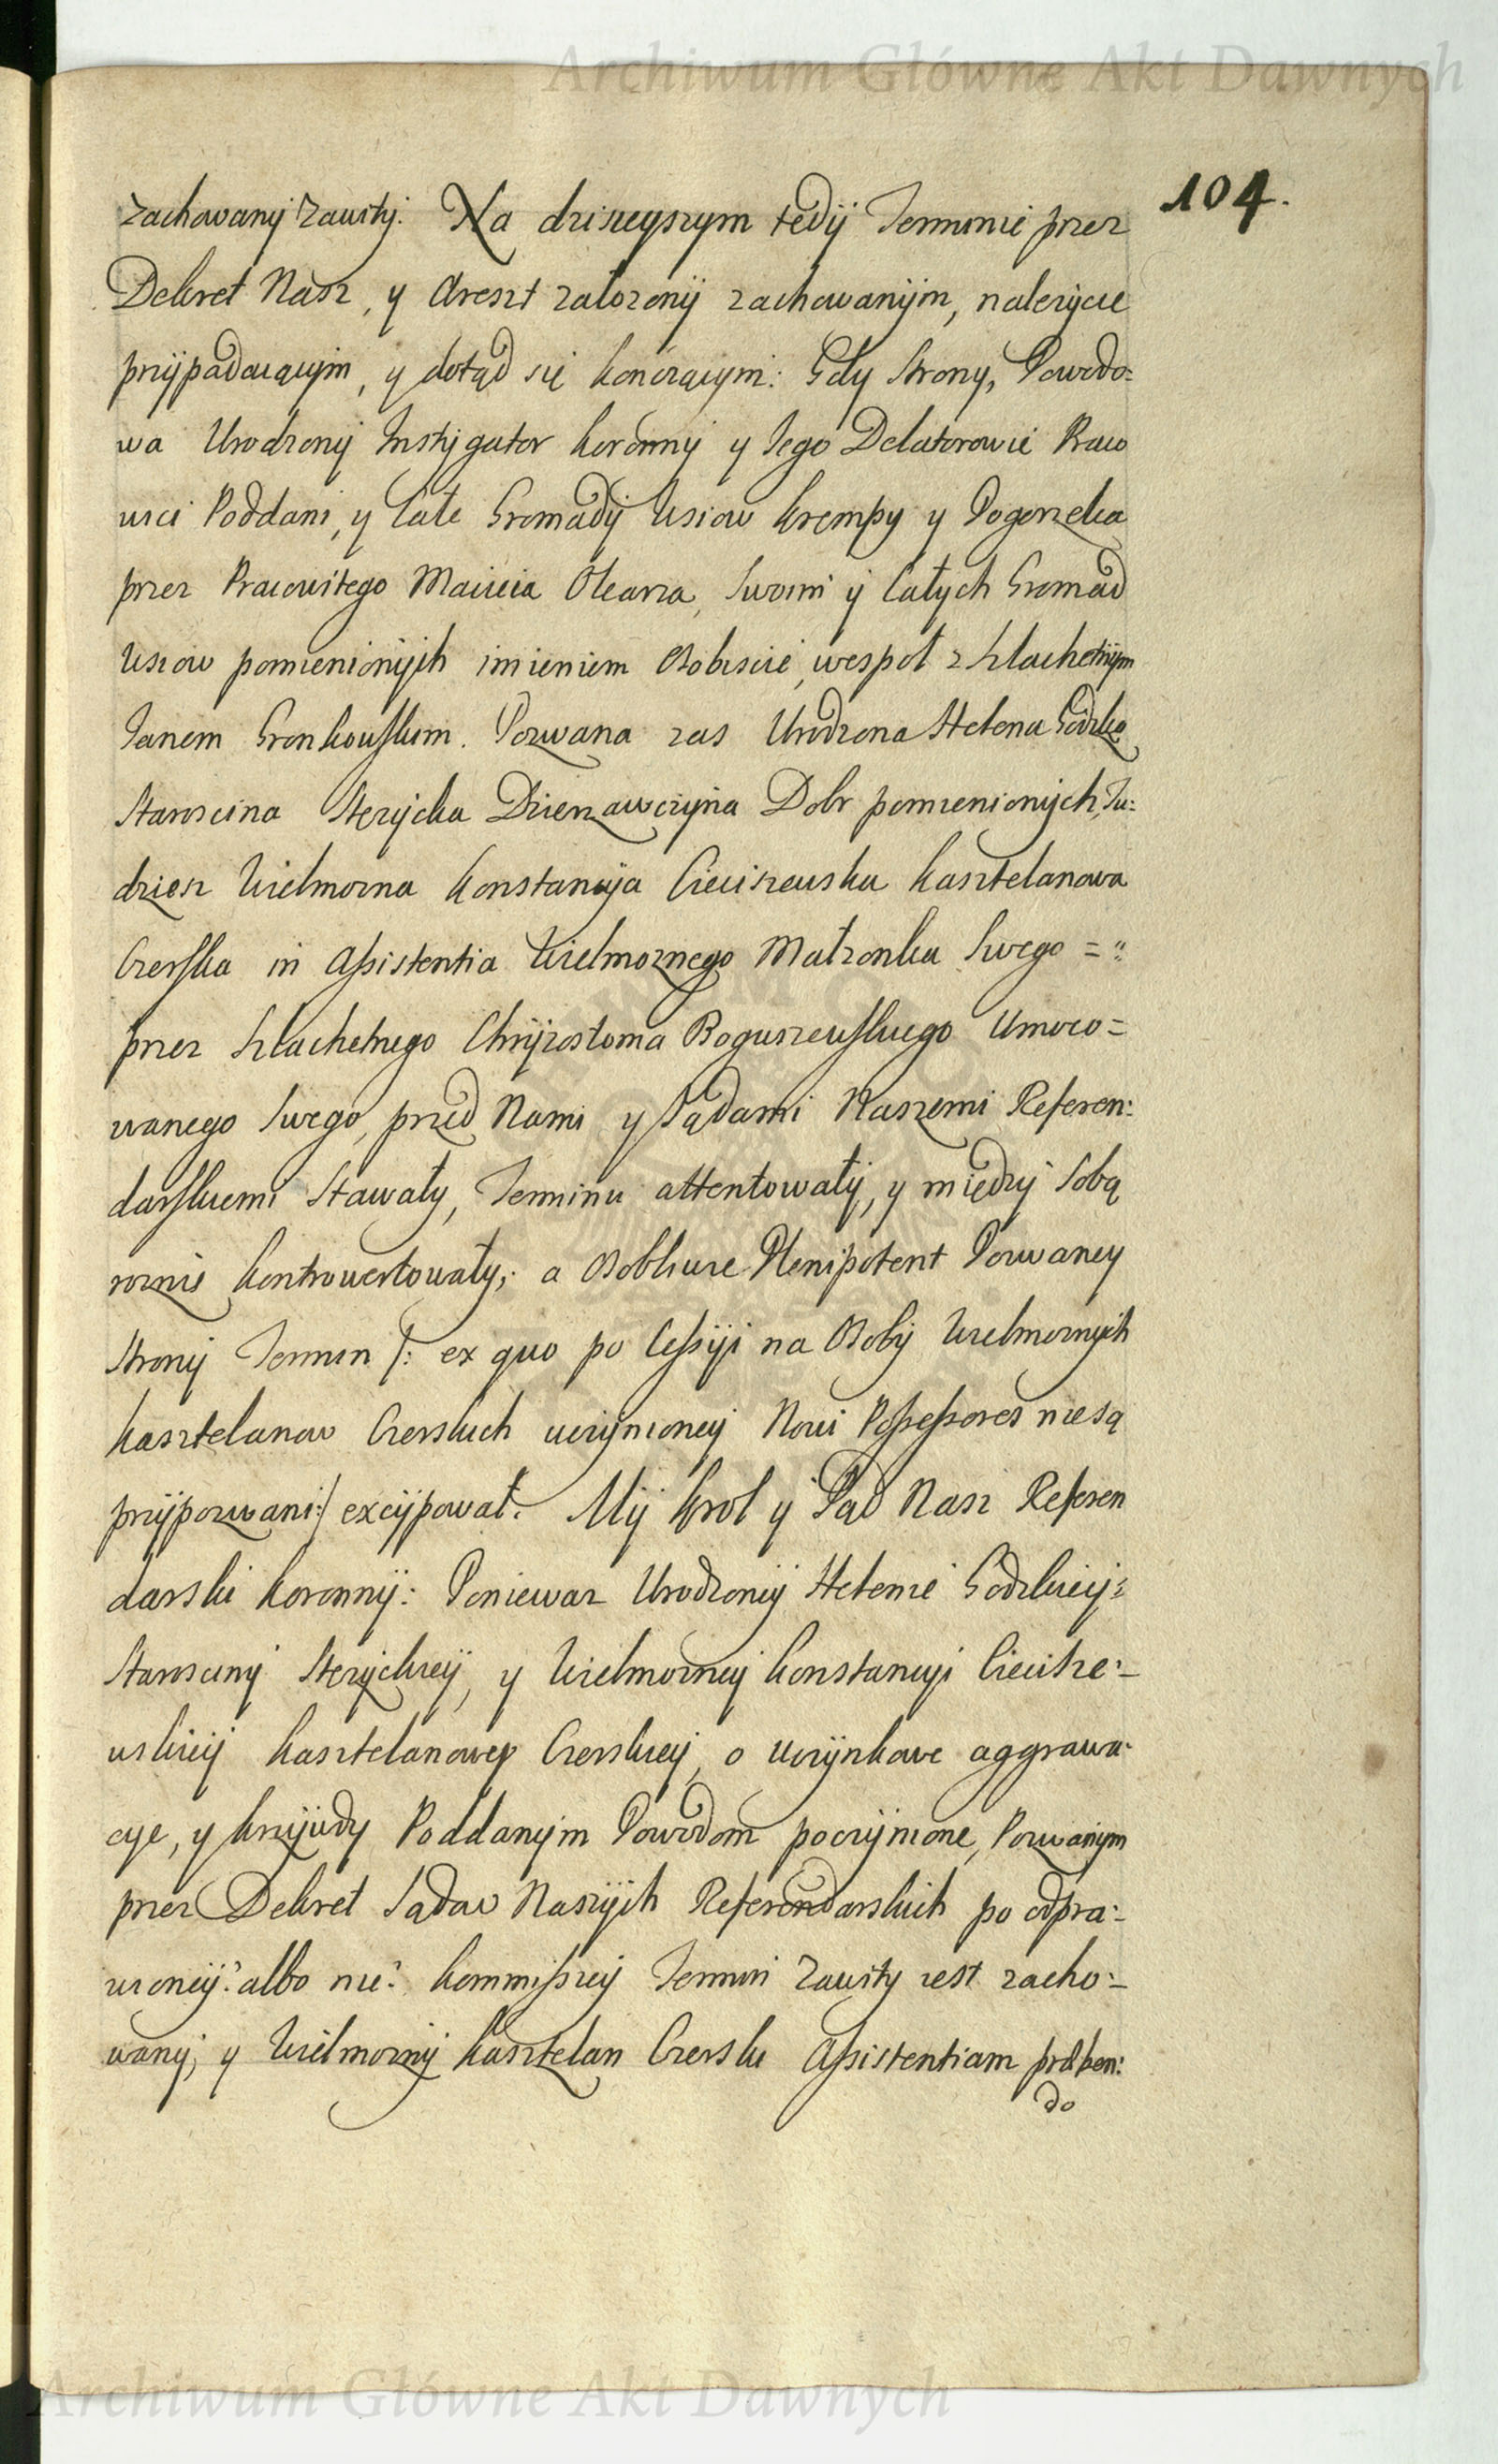 Archiwum Główne Akt Dawnych
104.
zachowany zawity. Na dzisieyszym tedy Terminie przez
Dekret Nasz, y Areszt załozony zachowanym, nalezycie
przypadaiącym, y dotąd się konczącym: Gdy Strony, Powodo=
wa Urodzony Instygator koronny y Jego Delatorowie Praco
wici Poddani, y Całe Gromady Wsiow Krempy y Pogorzelca
przez Pracowitego Macieia Olearza, Swoim y Całych Gromad
Wsiow pomienionych imieniem Osobiscie, wespoł z Szlachetnym
Janem Gronkowskim. Pozwana zas Urodzona Helena Godzka
Staroscina Stęzycka Dzierzawczyna Dobr pomienionych, Tu=
dziesz Wielmozna Konstancya Cieciszewska Kasztelanowa
Czerska in Assistentia Wielmoznego Małzonka Swego =
przez Szlachetnego Chryzostoma Boguszewskiego Umoco=
wanego Swego, przed Nami y Sądami Naszemi Referen:
darskiemi Stawały, Terminu attentowały, y między Sobą
roznie kontrowertowały; a Osobliwie Plenipotent Pozwaney
Strony Termin /: ex quo po Cessyi na Osoby Wielmoznych
Kasztelanow Czerskich uczynioney Nowi Possessores niesą
przypozwani:/ excypował. My Krol y Sąd Nasz Referen
darski koronny: Poniewaz Urodzoney Helenie Godzkiey:
Starosciny Stęzyckiey, y Wielmozney Konstancyi Ciecisze:
wskiey Kasztelanowey Czerskiey, o uczynkowe aggrawa:
cye, y krzywdy Poddanym Powodom poczynione, Pozwanym
przez Dekret Sądow Naszych Referendarskich po odpra:
wioney? albo nie? kommissyey Termin Zawity iest zacho:
wany, y Wielmozny Kasztelan Czerski Assistentiam præben:
do
Archiwum Główne Akt Dawnych